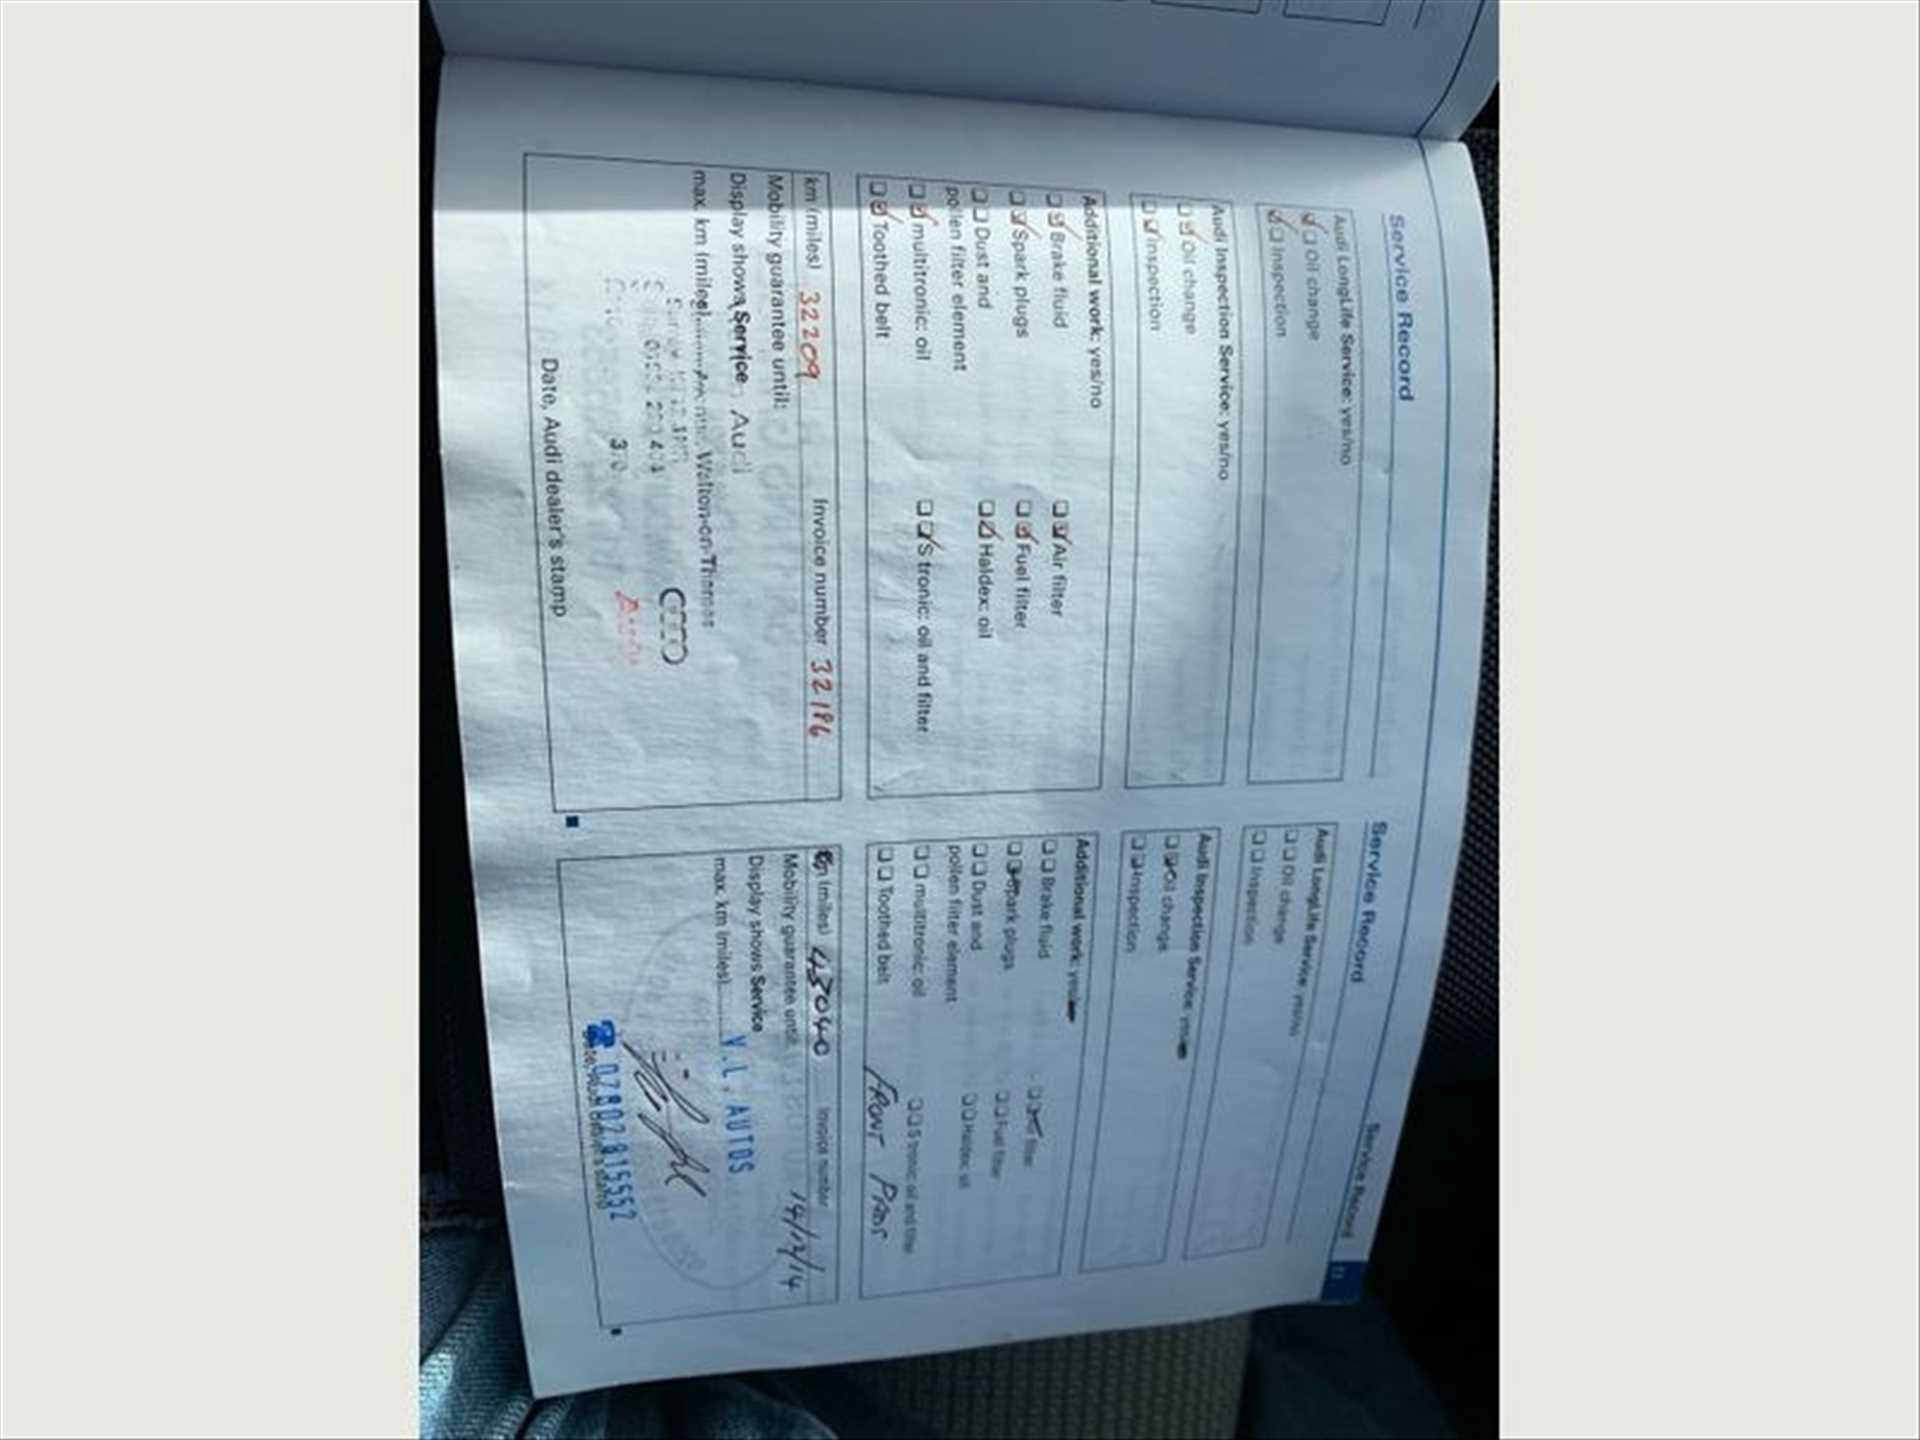 Service Record
Audi LongLife Service: yes/no
Oil change
Inspection
Audi Inspection Service: yes/no
Oil change
Inspection
Additional work: yes/no
Brake fluid
Air filter
Spark plugs
Fuel filter
Dust and
pollen filter element
Haldex: oil
multitronic: oil
S tronic: oil and filter
Toothed belt
km (miles) 32209
Invoice number 32186
Mobility guarantee until:
Display shows Service
Audi
max. km (miles)
Walton-on-Thames
Date, Audi dealer's stamp
Service Record
Audi LongLife Service: yes/no
Oil change
Inspection
Audi Inspection Service:
Oil change
Inspection
Additional work:
Brake fluid
filter
Spark plugs
Fuel filter
Dust and
pollen filter element
Haldex: oil
multitronic: oil
S tronic: oil and filter
Toothed belt
FRONT PADS
km (miles)
Invoice number
Mobility guarantee until:
14/12/14
Display shows Service
V.L. AUTOS
max. km (miles)
07802815552
Service Record